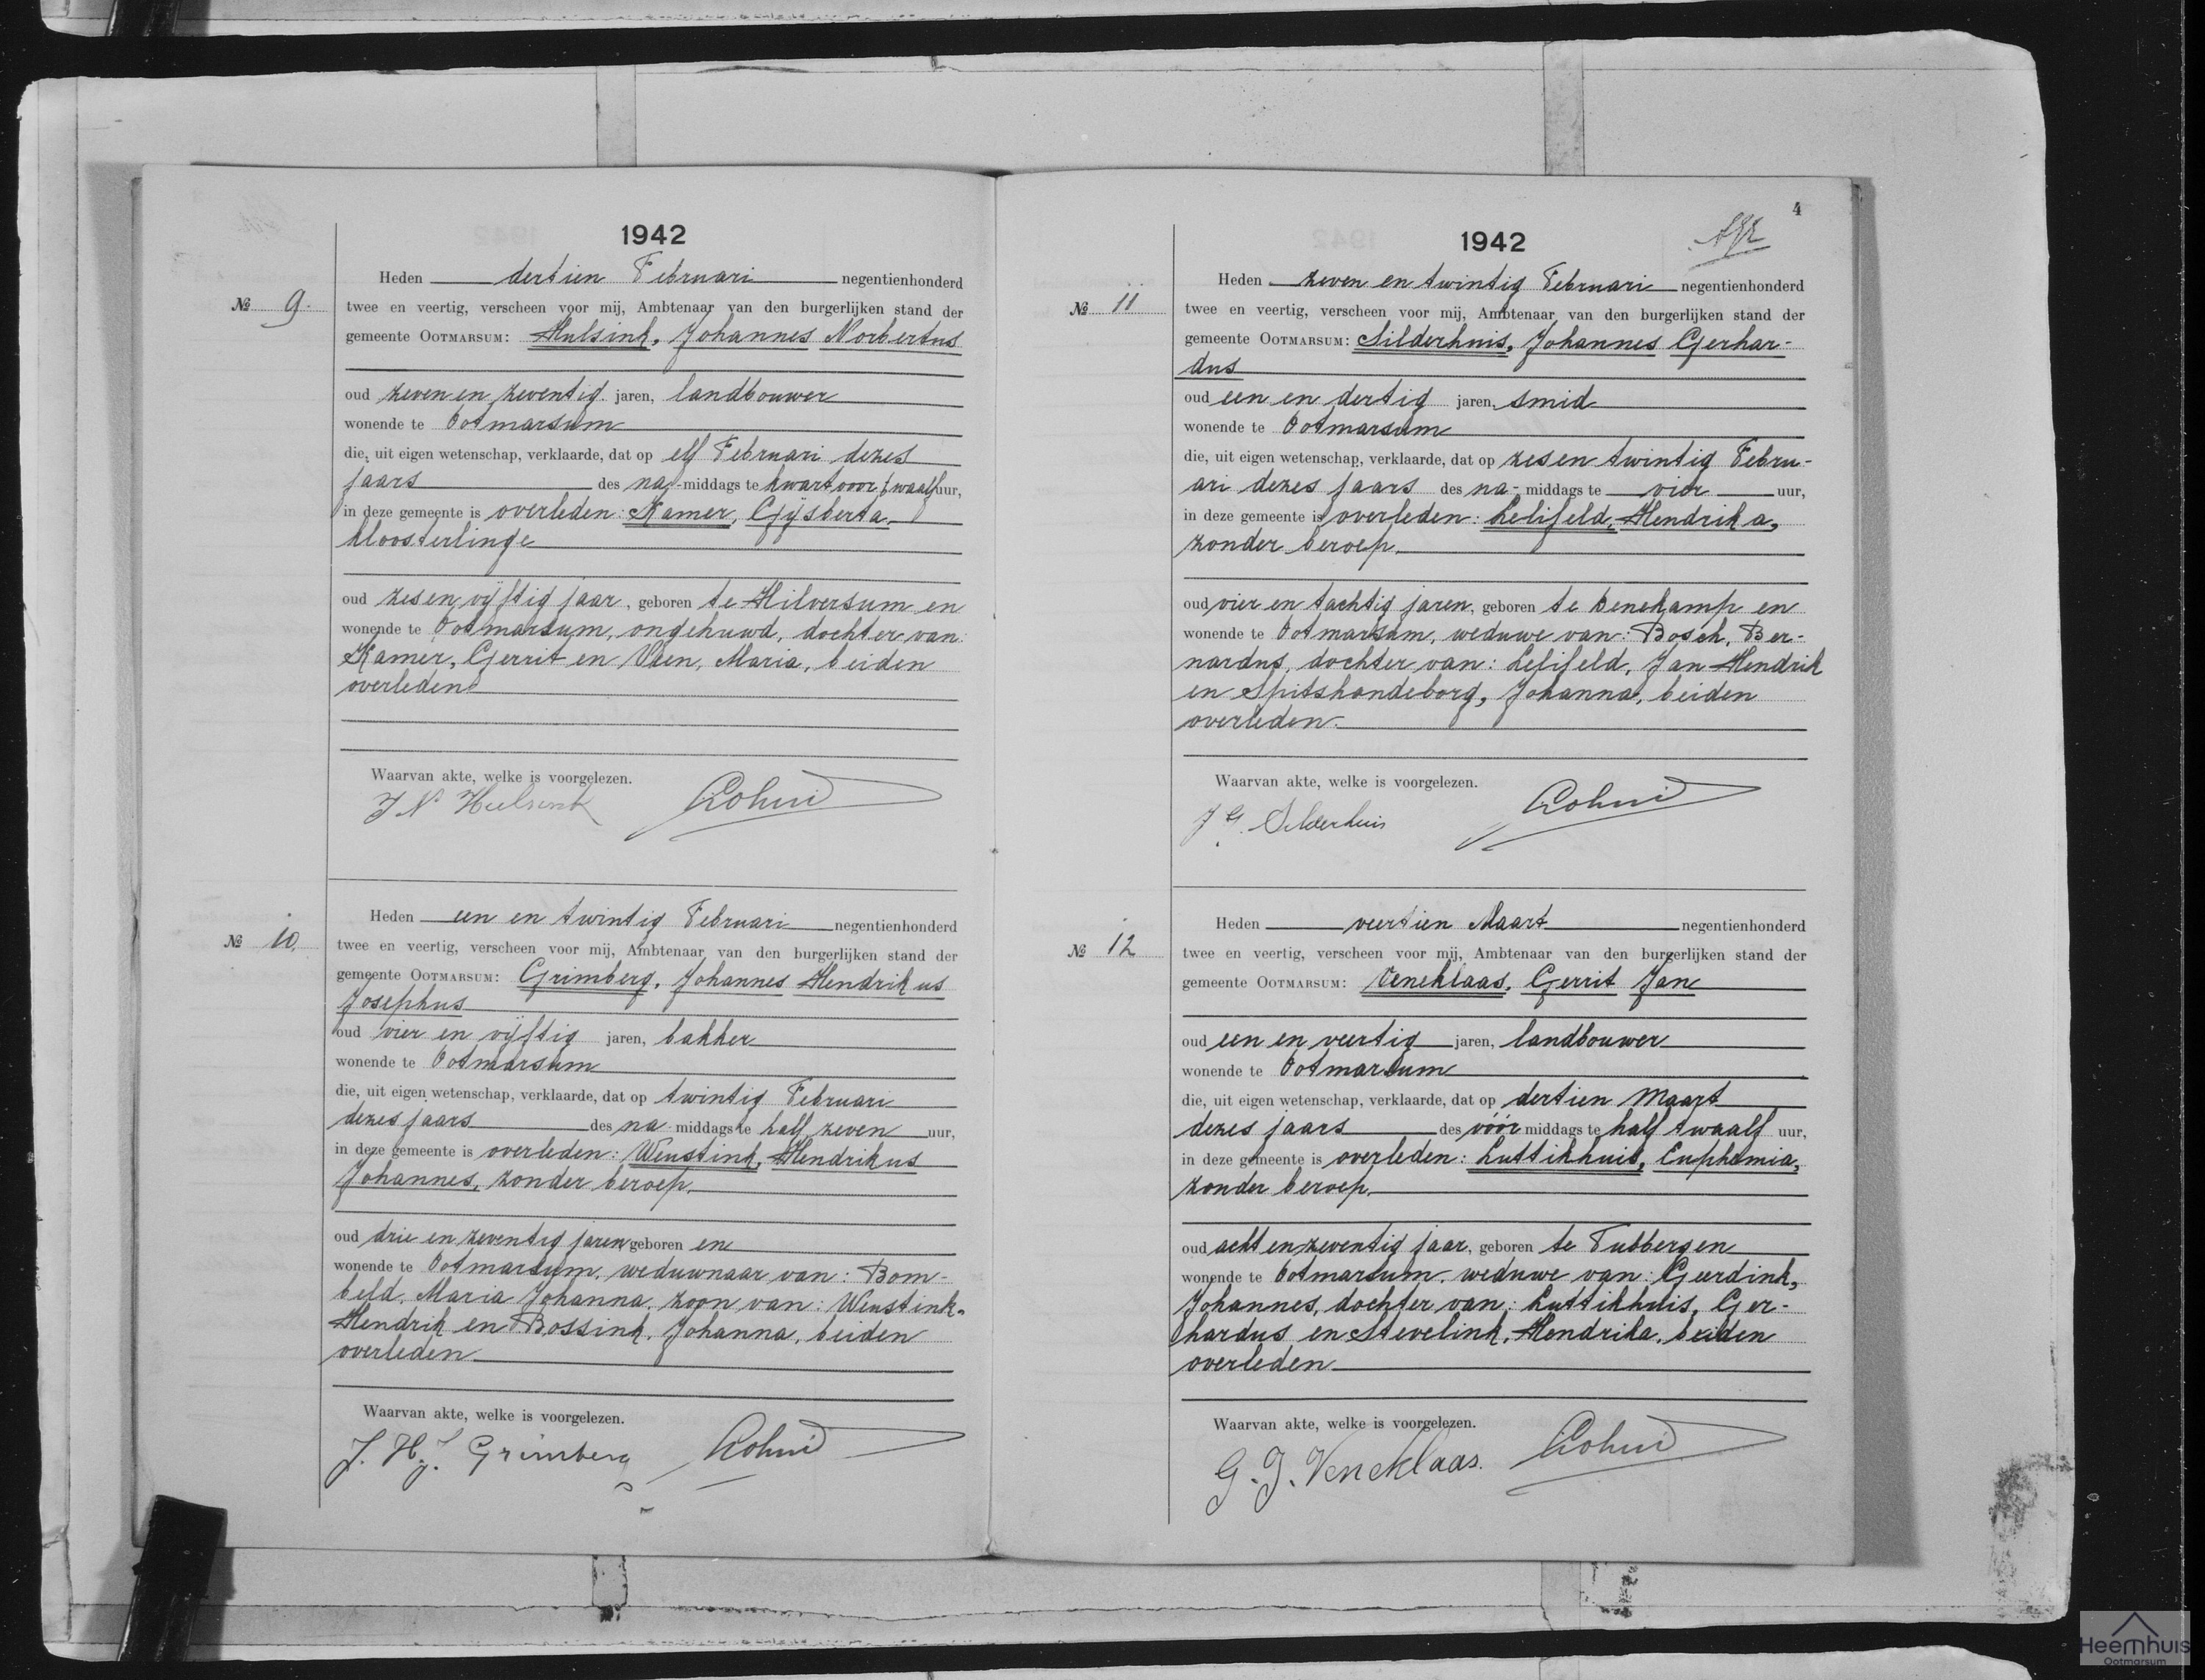 1942
№ 9.
Heden dertien Februari negentienhonderd
twee en veertig, verscheen voor mij, Ambtenaar van den burgerlijken stand der
gemeente OOTMARSUM: Hulsink, Johannes Norbertus
oud zeven en zeventig jaren, landbouwer
wonende te Ootmarsum
die, uit eigen wetenschap, verklaarde, dat op elf Februari dezes
jaars des na-middags te kwart voor twaalf uur,
in deze gemeente is overleden: Kamer, Gijsberta
kloosterlinge
oud zes en vijftig jaar, geboren te Hilversum en
wonende te Ootmarsum, ongehuwd, dochter van:
Kamer, Gerrit en Veen, Maria, beiden
overleden
Waarvan akte, welke is voorgelezen.
J N Hulsink
№ 10.
Heden een en twintig Februari negentienhonderd
twee en veertig, verscheen voor mij, Ambtenaar van den burgerlijken stand der
gemeente OOTMARSUM: Grimberg, Johannes Hendrikus
Josephus
oud vier en vijftig jaren, bakker
wonende te Ootmarsum
die, uit eigen wetenschap, verklaarde, dat op twintig Februari
dezes jaars des na middags te half zeven uur,
in deze gemeente is overleden: Weustink, Hendrikus
Johannes, zonder beroep.
oud drie en zeventig jaren, geboren en
wonende te Ootmarsum, weduwnaar van: Bom-
beld, Maria Johanna, zoon van: Weustink,
Hendrik en Bossink, Johanna, beiden
overleden
Waarvan akte, welke is voorgelezen.
J. H. J. Grimberg
4
1942
№ 11
Heden zeven en twintig Februari negentienhonderd
twee en veertig, verscheen voor mij, Ambtenaar van den burgerlijken stand der
gemeente OOTMARSUM: Silderhuis, Johannes Gerhar-
dus
oud een en dertig jaren, smid
wonende te Ootmarsum
die, uit eigen wetenschap, verklaarde, dat op zes en twintig Febru-
ari dezes jaars des na-middags te vier uur,
in deze gemeente is overleden: Lelifeld, Hendrika,
zonder beroep.
oud vier en tachtig jaren, geboren te Denekamp en
wonende te Ootmarsum, weduwe van: Bosch, Ber-
nardus, dochter van: Lelifeld, Jan Hendrik
en Spitshandeborg, Johanna, beiden
overleden.
Waarvan akte, welke is voorgelezen.
J G. Silderhuis
№ 12
Heden veertien Maart negentienhonderd
twee en veertig, verscheen voor mij, Ambtenaar van den burgerlijken stand der
gemeente OOTMARSUM: Veneklaas, Gerrit Jan
oud een en veertig jaren, landbouwer
wonende te Ootmarsum
die, uit eigen wetenschap, verklaarde, dat op dertien Maart
dezes jaars des vóór middags te half twaalf uur,
in deze gemeente is overleden: Luttikhuis, Euphemia,
zonder beroep.
oud acht en zeventig jaar, geboren te Tubbergen
wonende te Ootmarsum, weduwe van: Geerdink,
Johannes, dochter van: Luttikhuis, Ger-
hardus en Stevelink, Hendrika, beiden
overleden
Waarvan akte, welke is voorgelezen.
G. J. Veneklaas.
Heemhuis
Ootmarsum